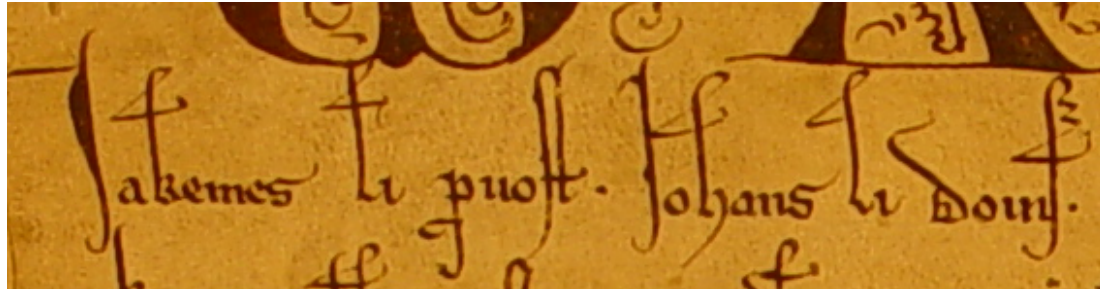 Jakemes li puost. Johans li doins.